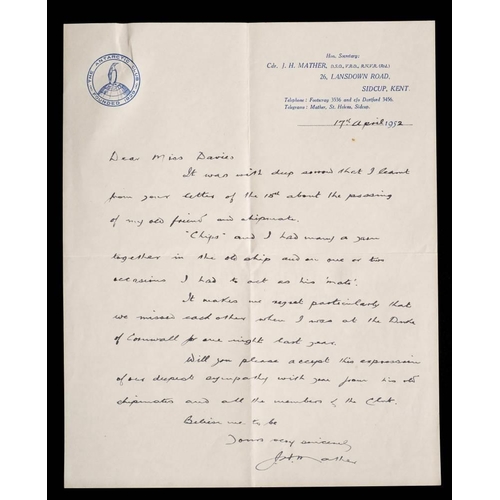 THE ANTARCTIC CLUB
FOUNDED 1929
Hon. Secretary:
Cdr. J. H. MATHER, O.B.E., V.R.D., R.N.V.R. (Rtd.)
26, LANSDOWN ROAD,
SIDCUP, KENT.
Telephone: Footscray 3556 and c/o Dartford 3456.
Telegrams: Mather, St. Helens, Sidcup.
17th April 1952
Dear Miss Davies
It was with deep sorrow that I learnt
from your letter of the 15th about the passing
of my old friend and shipmate.
"Chips" and I had many a yarn
together in the old ship and on one or two
occasions I had to act as his 'mate'.
It makes me regret particularly that
we missed each other when I was at the Duke
of Cornwall for one night last year.
Will you please accept this expression
of our deepest sympathy with you from his old
shipmates and all the members of the Club.
Believe me to be
Yours very sincerely
J H Mather